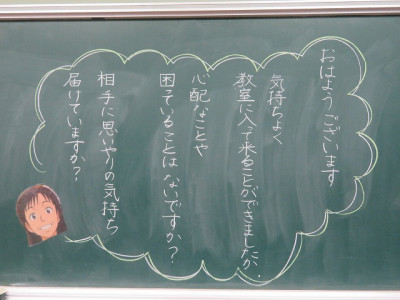 おはようございます
気持ちよく
教室に入って来ることができましたか.
心配なことや
困っていることはないですか？
相手に思いやりの気持ち
届けていますか？